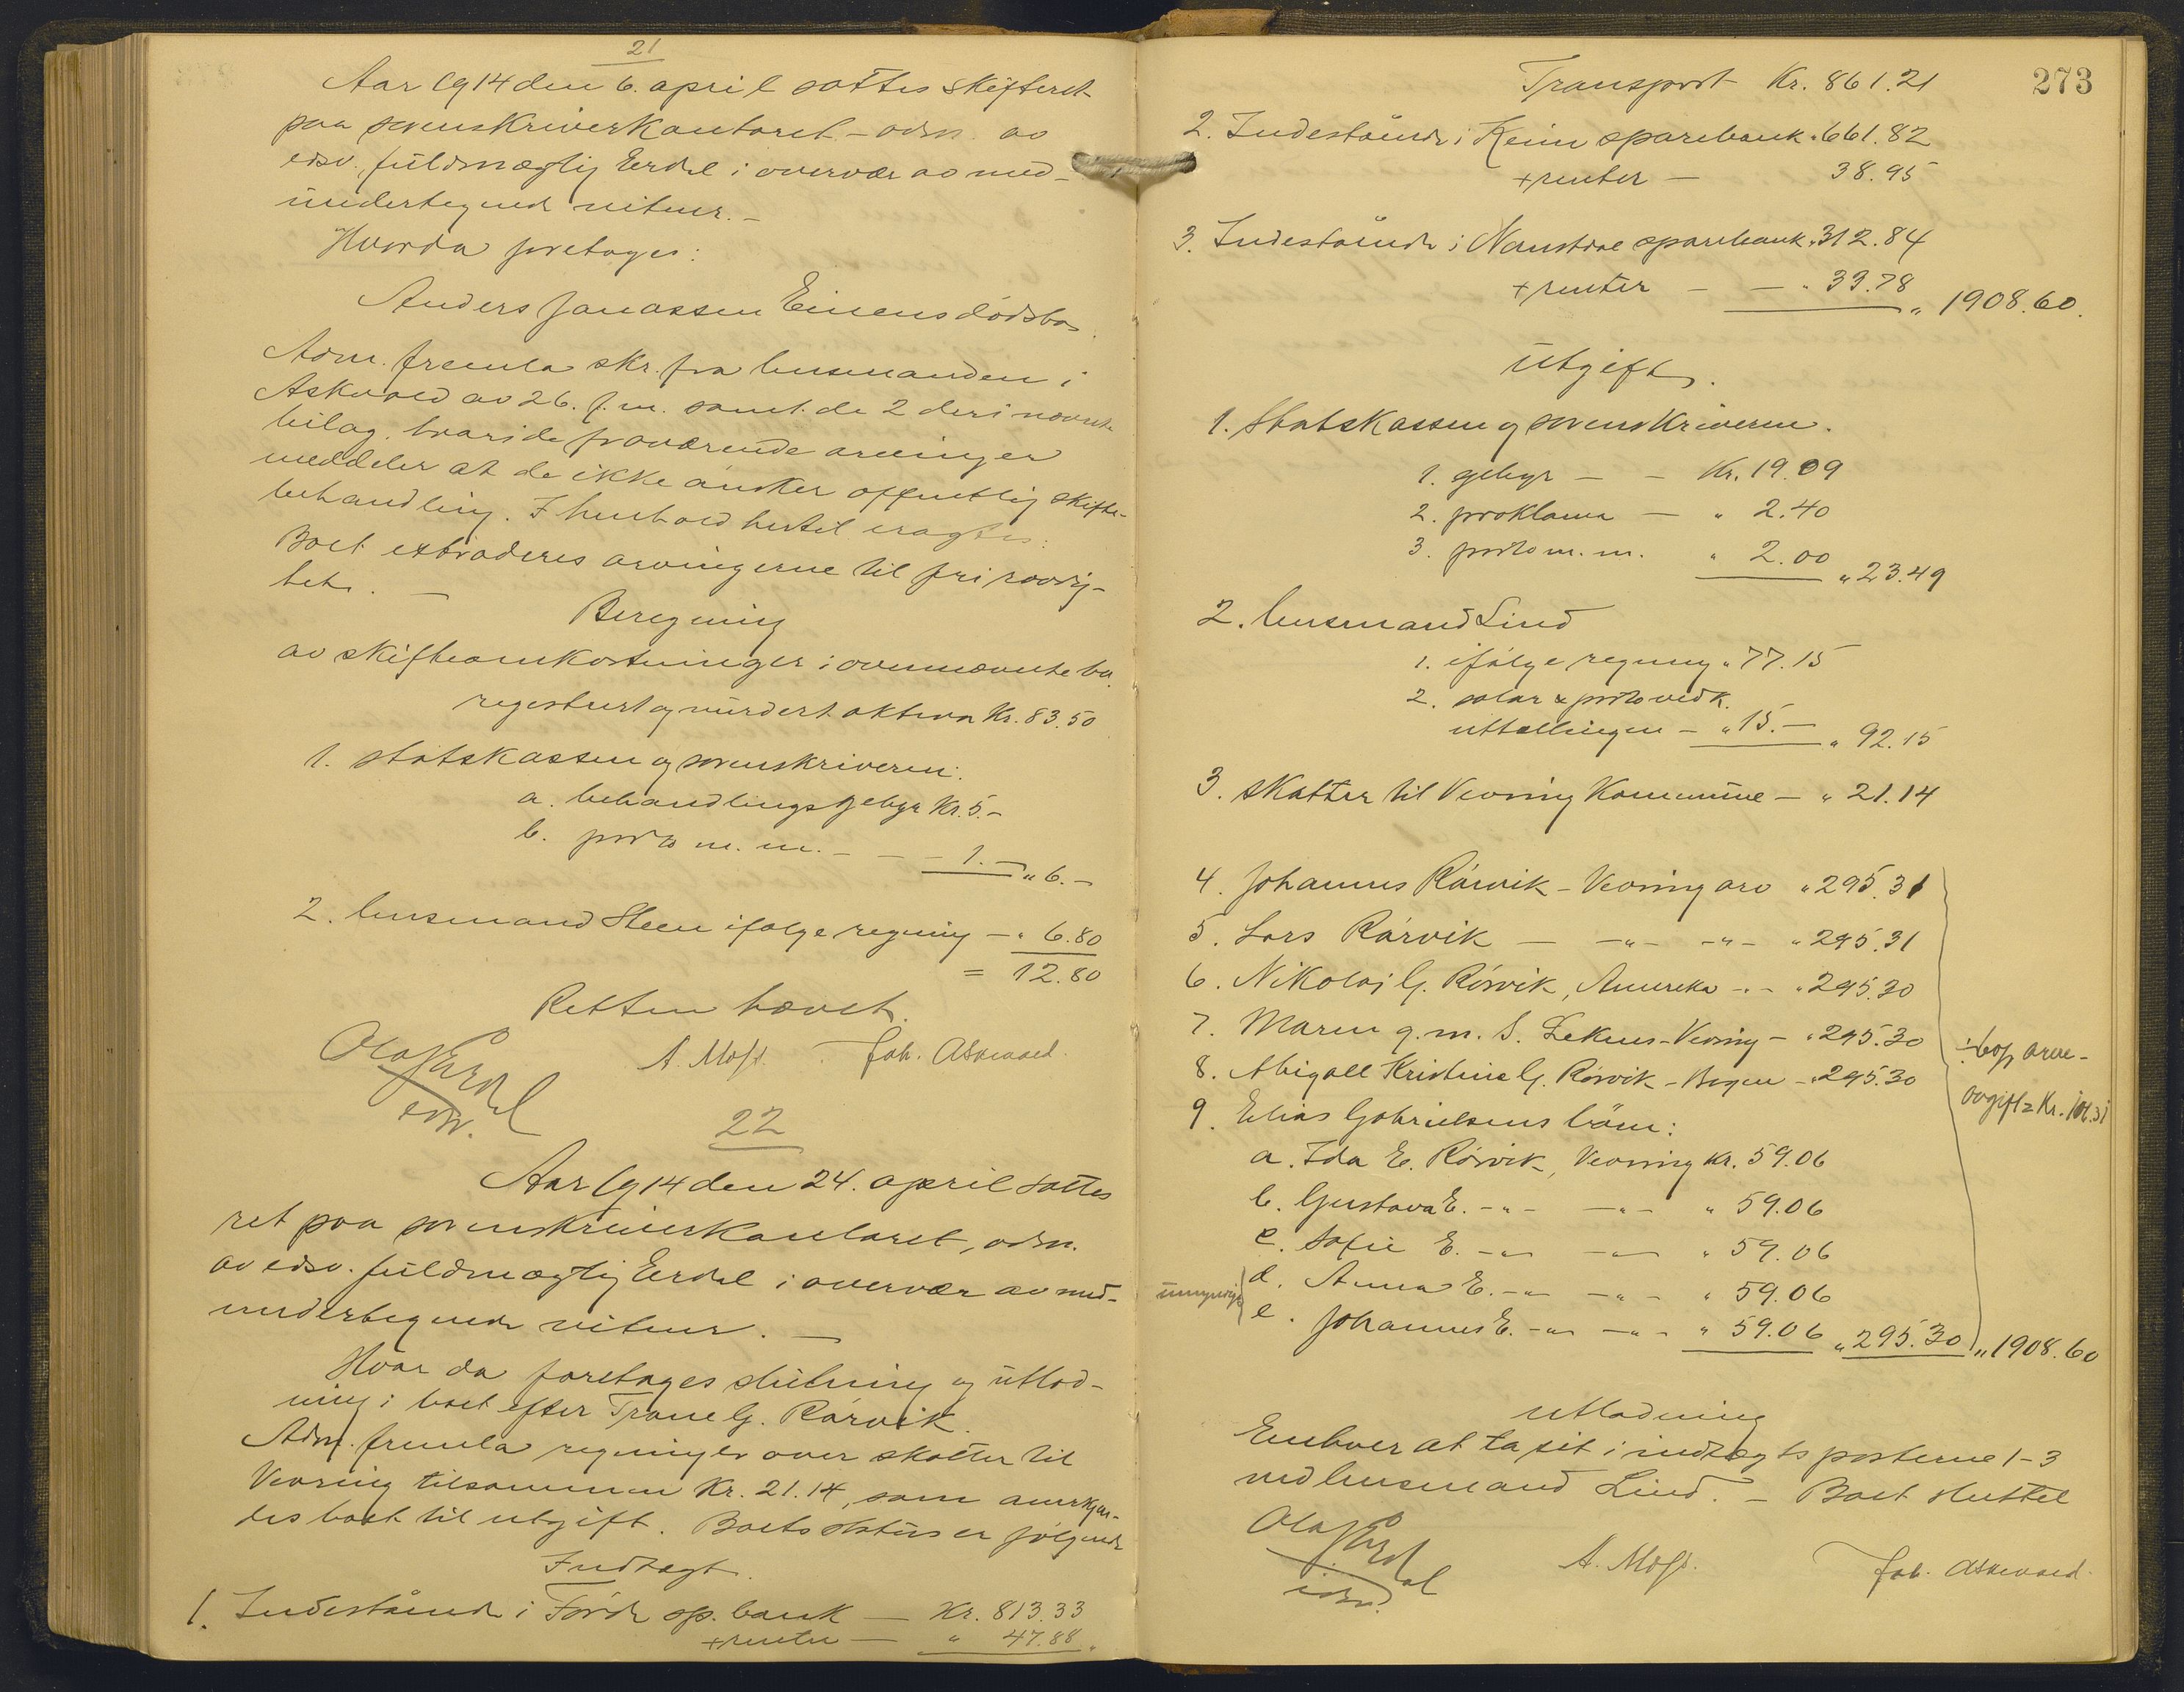 21
Aar 1914 den 6. april sattes skifteret
paa sorenskriverkontoret - adm. av
edsv. fuldmægtig Erdal i overvær av med-
undertegnede vitner. -
Hvorda foretages:
Anders Jonassen Einens dödsbo.
Adm. fremla skr. fra lensmanden i
Askvold av 26. f. m. samt de 2 deri nævnte
bilag, hvori de fraværende arvinger
meddeler at de ikke ønsker offentlig skifte-
behandling. I henhold hertil eragtes:
Boet extraderes arvingerne til fri raadig-
het. -
Beregning
av skifteomkostninger i ovennævnte bo.
registrert og vurdert aktiva Kr. 83.50
1. statskassen og sorenskriveren:
a. behandlingsgebyr Kr. 5.-
b. porto m. m. - - - 1.- " 6.-
2. lensmand Steen ifølge regning - " 6.80
= 12.80
Retten hævet.
Olaf Erdal
edsv.
A. Moss. Joh. Askvold.
22
Aar 1914 den 24. april sattes
ret paa sorenskriverkontoret, adm.
av edsv. fuldmægtig Erdal i overvær av med-
undertegnede vitner. -
Hvor da foretages slutning og utlod-
ning i boet efter Trane G. Rørvik.
Adm. fremla regninger over skatter til
Vevring tilsammen Kr. 21.14, som anerkjen-
des boet til utgift. Boets status er følgende
Indtægt.
1. Indestående i Førde sp. bank - Kr. 813.33
+ renter - " 47.88 "
273
Transport Kr. 861.21
2. Indestående i Kinn sparebank " 661.82
+ renter - 38.95
3. Indestående i Naustdal sparebank " 312.84
+ renter - - " 33.78
" 1908.60.
Utgift.
1. Statskassen og sorenskriveren.
1. gebyr - - Kr. 19.09
2. proklama - " 2.40
3. porto m. m. " 2.00
" 23.49
2. lensmand Lind
1. ifølge regning " 77.15
2. salær & porto vedk.
uttællingen - " 15.- " 92.15
3. skatter til Vevring Kommune - " 21.14
4. Johannes Rørvik - Vevring arv " 295.31
5. Lars Rørvik - -"- -"- " 295.31
6. Nikolai G. Rørvik, Amerika -"- " 295.30
7. Maren g. m. S. Leknes - Vevring - " 295.30
8. Abigael Kristine G. Rørvik - Bergen - " 295.30
÷ 6% arve-
avgift = Kr. 106.31
9. Elias Gabrielsens børn:
a. Ida E. Rørvik, Vevring Kr. 59.06
b. Gustava E. -"- -"- " 59.06
c. Sofie E. -"- -"- " 59.06
umyndige
d. Anna E. -"- -"- " 59.06
e. Johannes E. -"- -"- " 59.06 " 295.30 " 1908.60
Utlodning
Enhver at ta sit i indtægts posterne 1-3
ved lensmand Lind. - Boet sluttet
Olaf Erdal
edsv.
A. Moss.
Joh. Askvold.